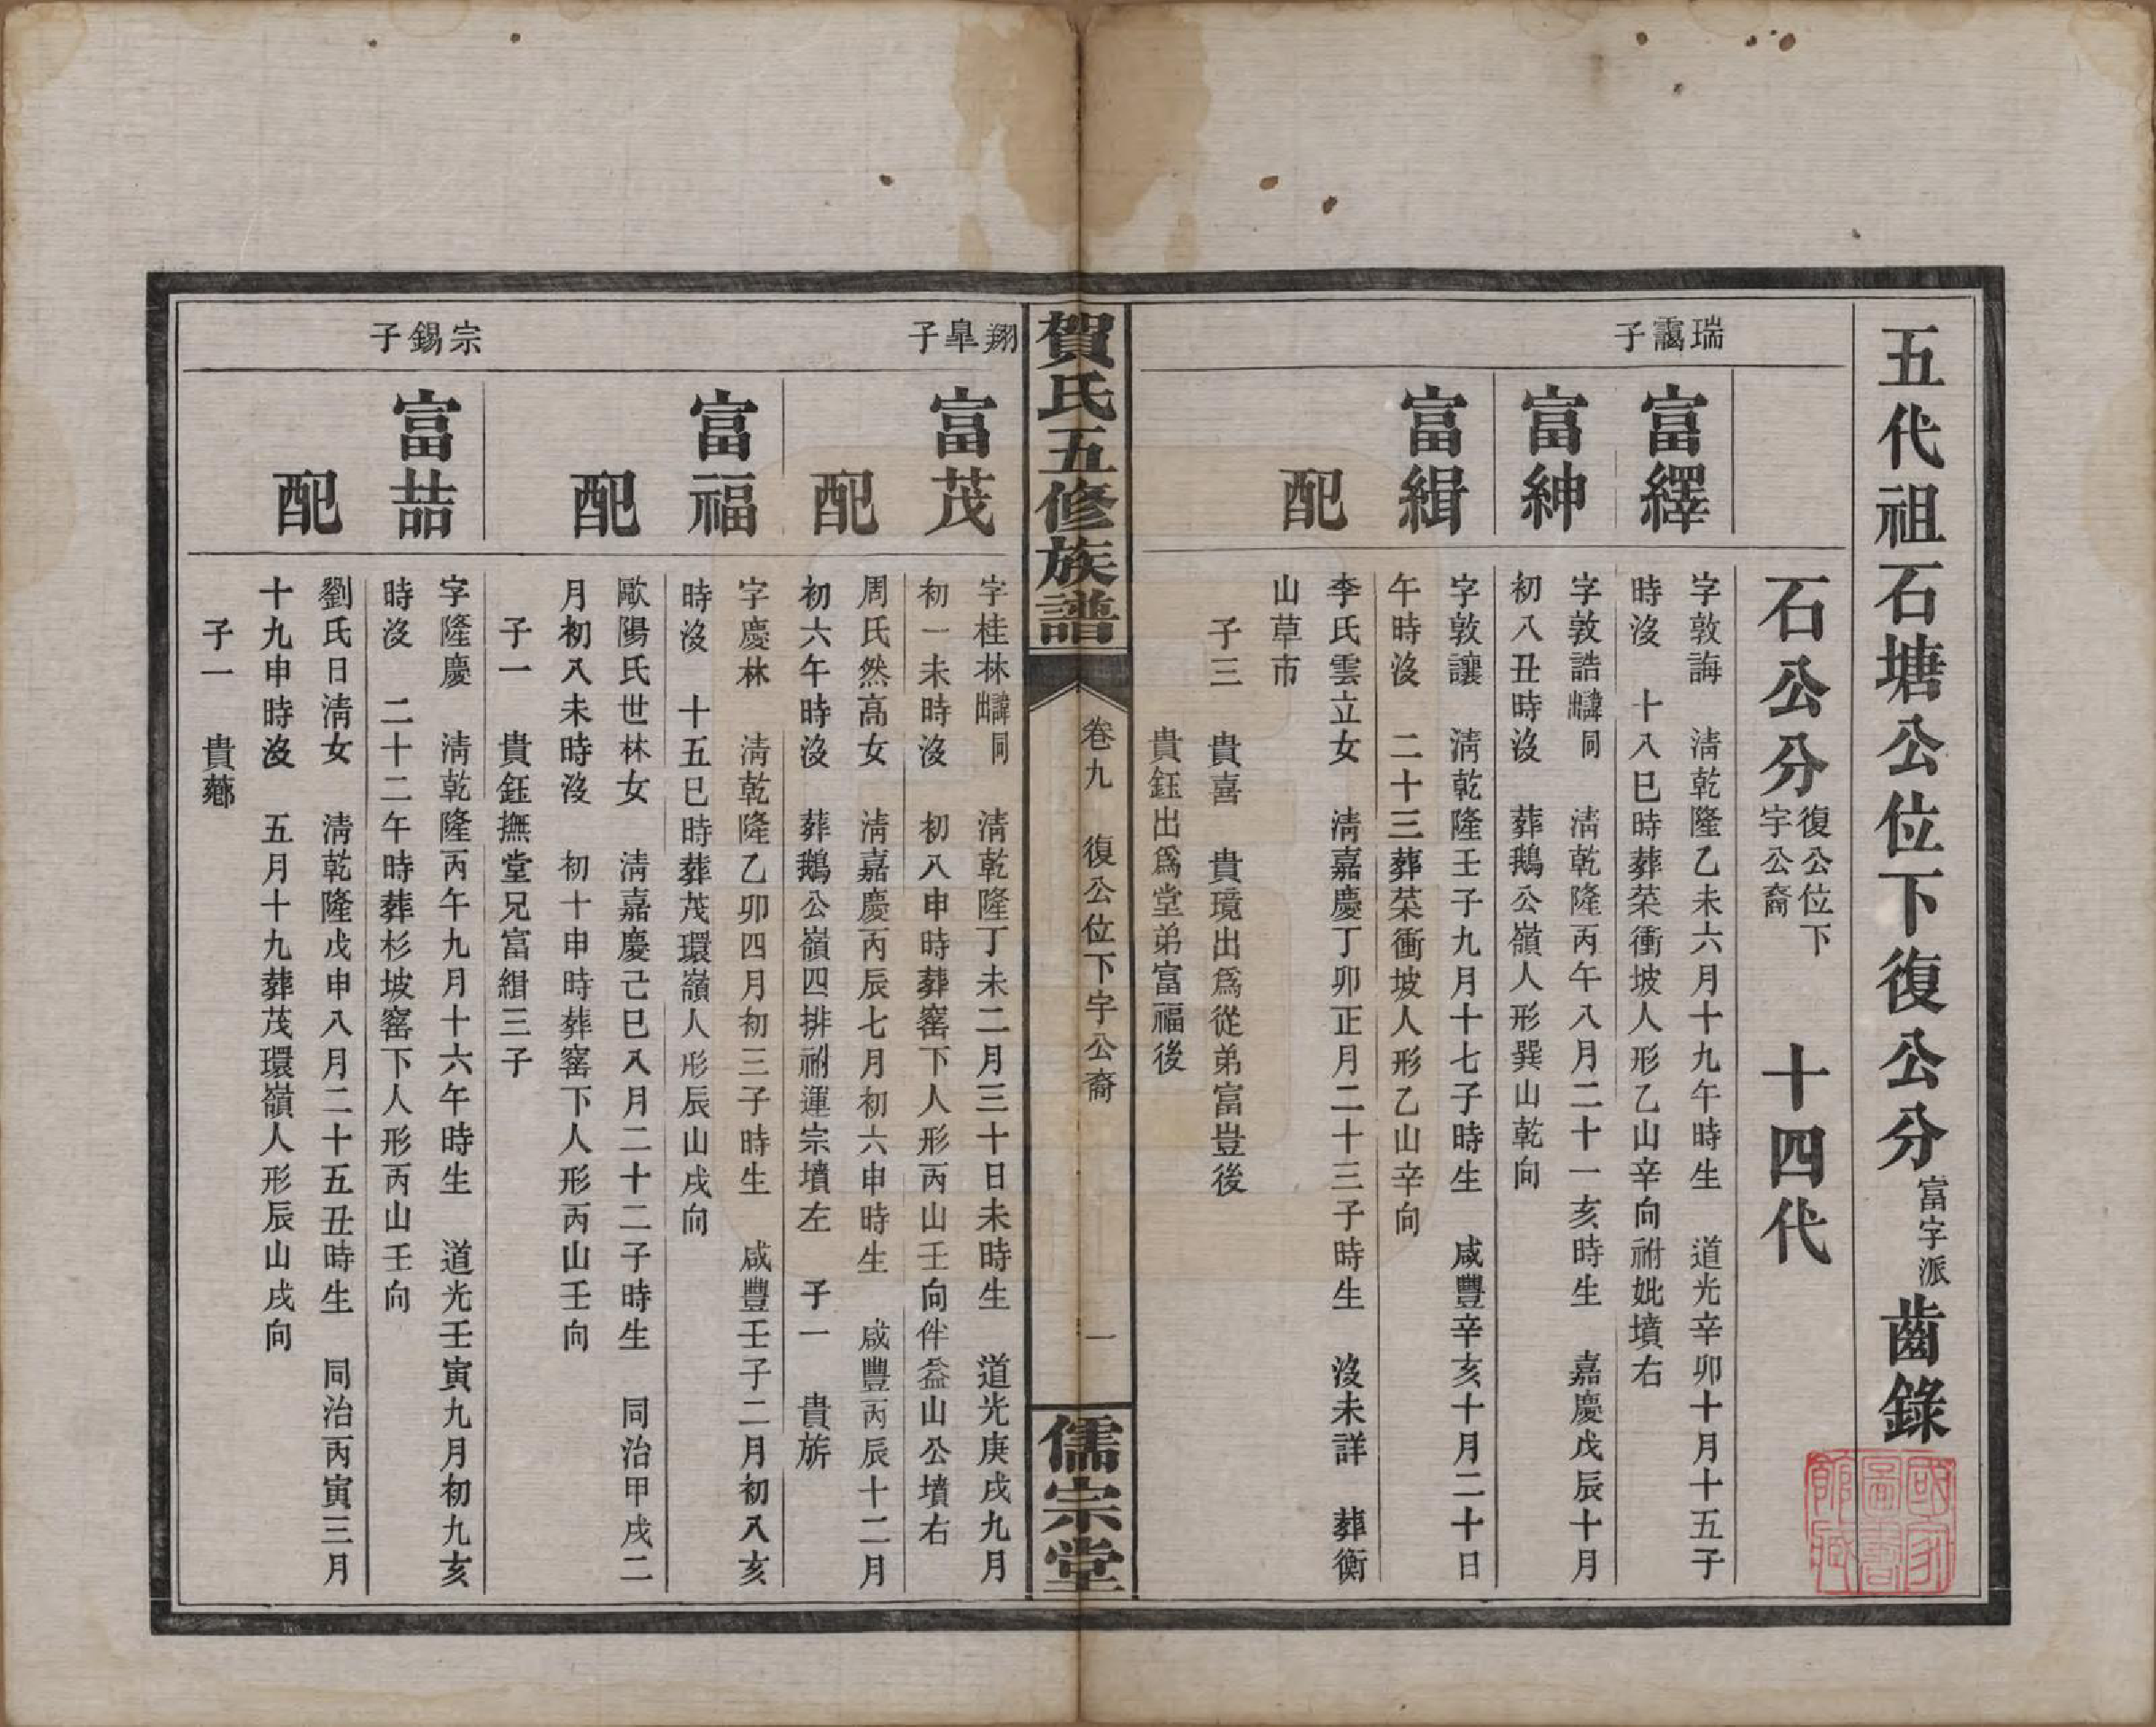 五代祖石塘公位下復公分富字派齒錄
石公分復公位下宇公裔 十四代
瑞靄子
富繹
字敦誨 淸乾隆乙未六月十九午時生 道光辛卯十月十五子
時沒 十八巳時葬菜衝坡人形乙山辛向祔妣墳右
富紳
字敦誥出譁同 淸乾隆丙午八月二十一亥時生 嘉慶戊辰十月
初八丑時沒 葬鵝公嶺人形巽山乾向
富緝
字敦讓 淸乾隆壬子九月十七子時生 咸豐辛亥十月二十日
午時沒 二十三葬菜衝坡人形乙山辛向
配
李氏雲立女 淸嘉慶丁卯正月二十三子時生 沒未詳 葬衡
山草市
子三 貴喜 貴璄出爲從弟富豈後
貴鈺出爲堂弟富福後
賀氏五修族譜
卷九 復公位下宇公裔
一
儒宗堂
翔皐子
富茂
字桂林出譁同 淸乾隆丁未二月三十日未時生 道光庚戌九月
初一未時沒 初八申時葬窰下人形丙山壬向伴益山公墳右
配
周氏然高女 淸嘉慶丙辰七月初六申時生 咸豐丙辰十二月
初六午時沒 葬鵝公嶺四排祔運宗墳左 子一 貴旂
富福
字慶林 淸乾隆乙卯四月初三子時生 咸豐壬子二月初八亥
時沒 十五巳時葬茂環嶺人形辰山戌向
配
歐陽氏世林女 淸嘉慶己巳八月二十二子時生 同治甲戌二
月初八未時沒 初十申時葬窰下人形丙山壬向
子一 貴鈺撫堂兄富緝三子
宗錫子
富喆
字隆慶 淸乾隆丙午九月十六午時生 道光壬寅九月初九亥
時沒 二十二午時葬杉坡窰下人形丙山壬向
配
劉氏日淸女 淸乾隆戊申八月二十五丑時生 同治丙寅三月
十九申時沒 五月十九葬茂環嶺人形辰山戌向
子一 貴薌
國家圖書館藏